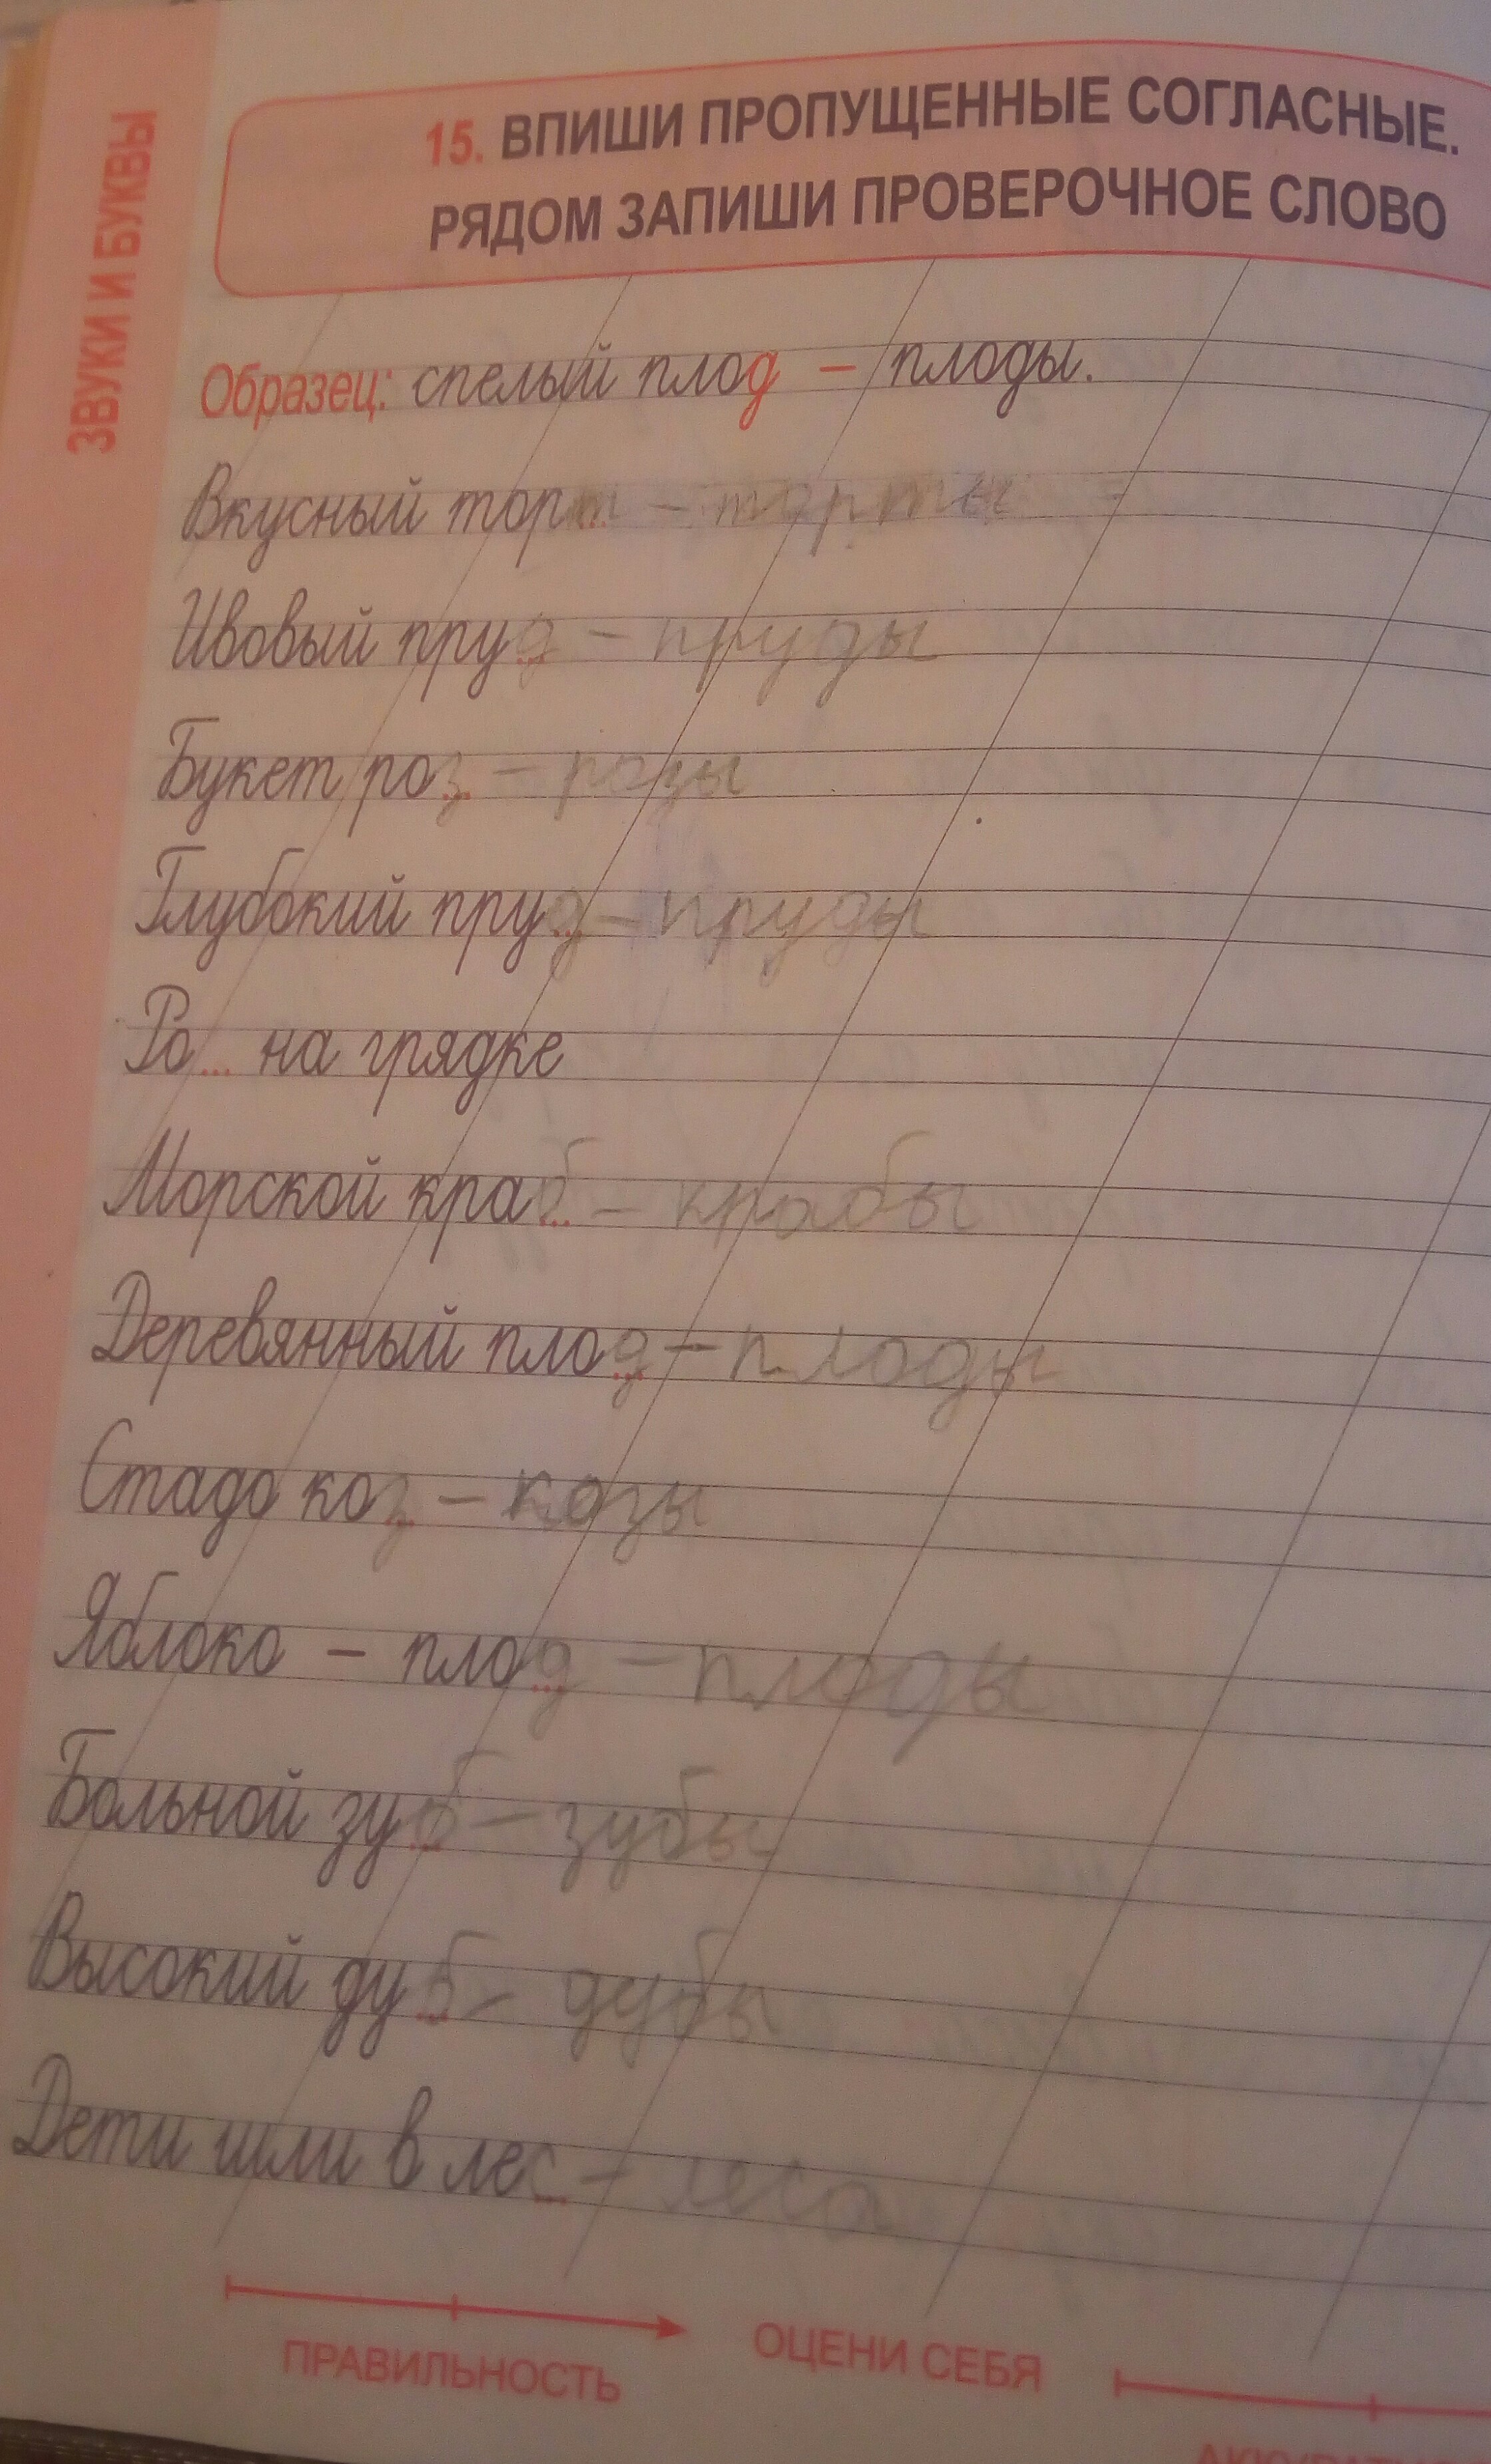 ЗВУКИ И БУКВЫ
15. ВПИШИ ПРОПУЩЕННЫЕ СОГЛАСНЫЕ.
РЯДОМ ЗАПИШИ ПРОВЕРОЧНОЕ СЛОВО
Образец: спелый плод – плоды.
Вкусный торт – торты
Ивовый пруд – пруды
Букет роз – розы
Глубокий пруд – пруды
Ро... на грядке
Морской краб – крабы
Деревянный плод – плоды
Стадо коз – козы
Яблоко – плод – плоды
Больной зуб – зубы
Высокий дуб – дубы
Дети шли в лес – леса
ПРАВИЛЬНОСТЬ
ОЦЕНИ СЕБЯ